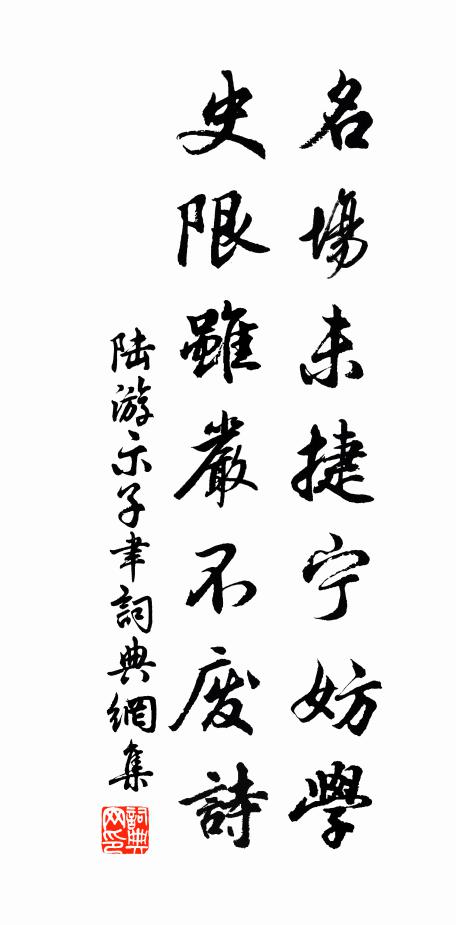 名場未捷宁妨學
史限雖嚴不废詩
陆游示子聿詞典網集
詞典网印